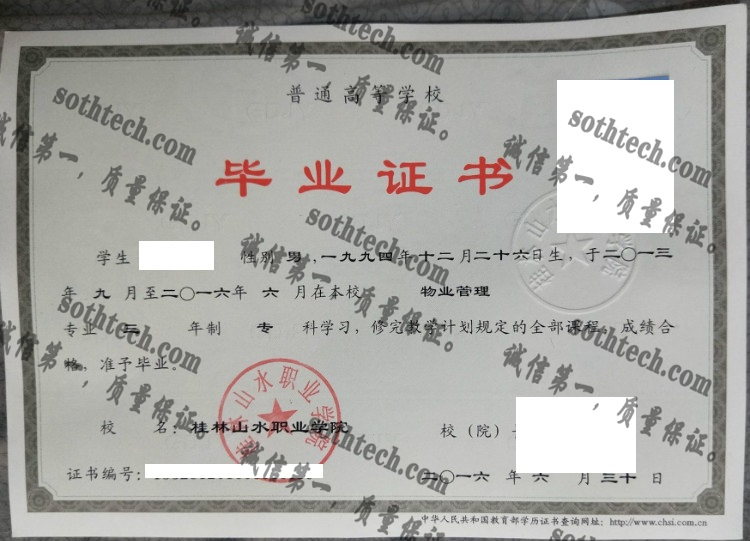 普通高等学校
毕业证书
学生 性别 男，一九九四年十二月二十六日生，于二〇一三
年 九 月至二〇一六年 六 月在本校 物业管理
专业 三 年制 专 科学习，修完教学计划规定的全部课程，成绩合
格，准予毕业。
桂林山水职业学院
校 名：桂林山水职业学院
校（院）
证书编号：
二〇一六 年 六 月 三十 日
中华人民共和国教育部学历证书查询网址：http://www.chsi.com.cn
sothtech.com
诚信第一，质量保证。
sothtech.com
诚信第一，质量保证。
sothtech.com
诚信第一，质量保证。
sothtech.com
诚信第一，质量保证。
sothtech.com
诚信第一，质量保证。
sothtech.com
诚信第一，质量保证。
诚信第一，质量保证。